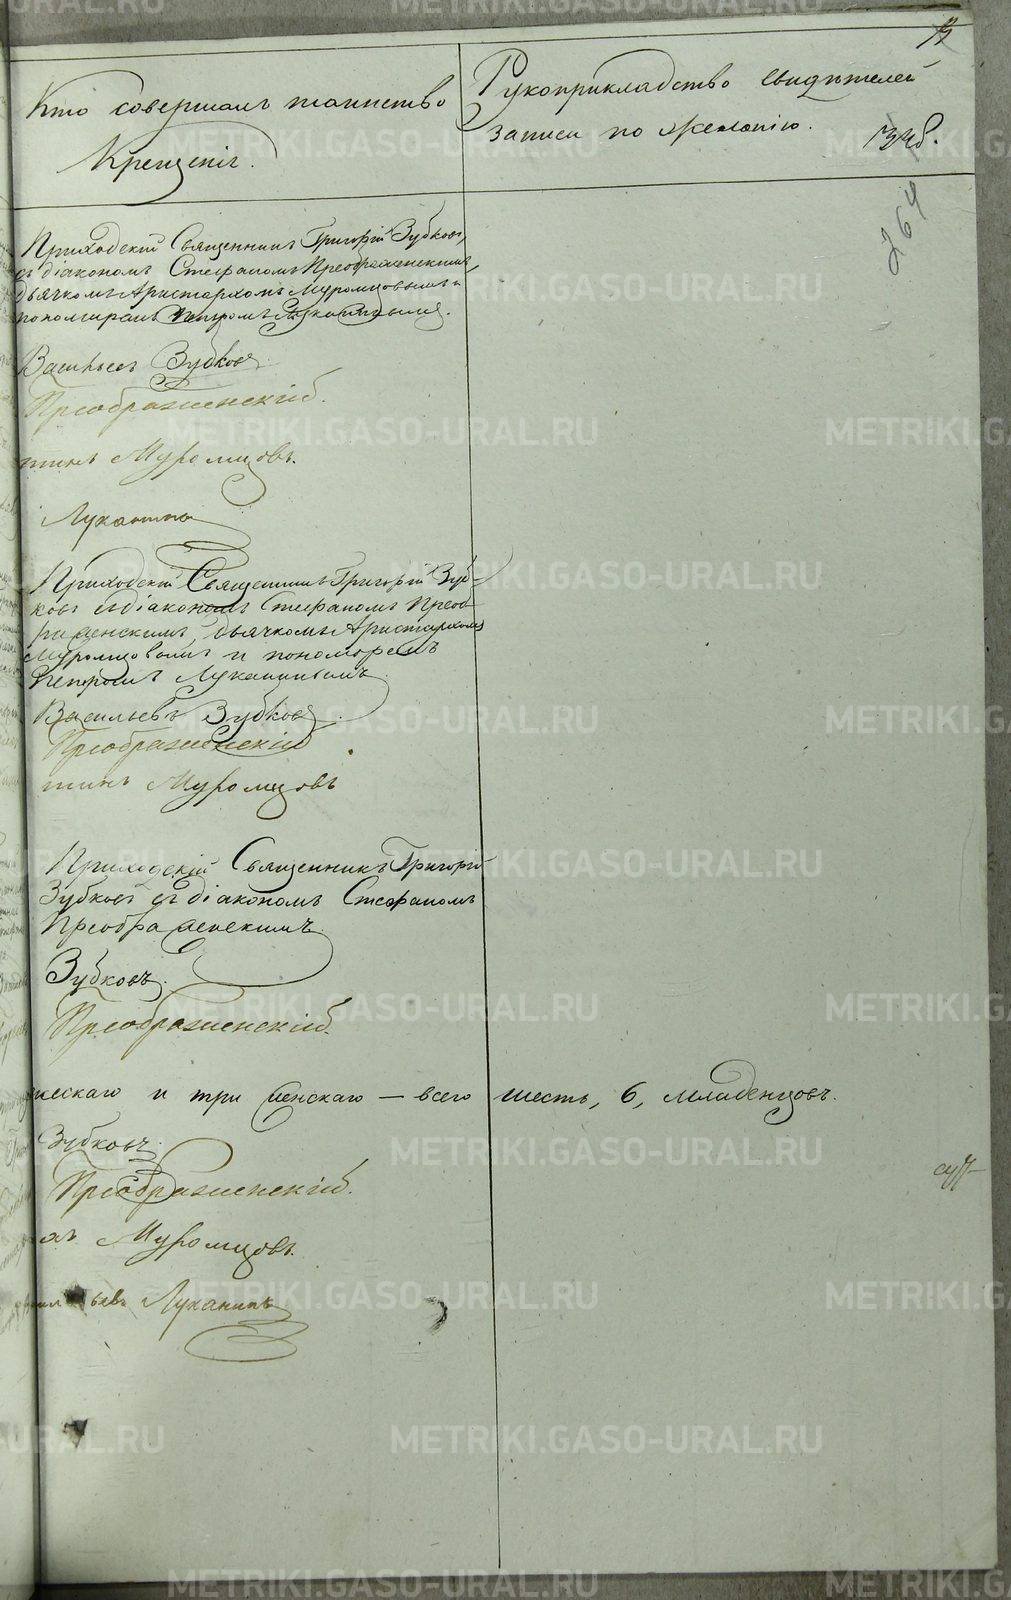 Кто совершалъ таинство
Крещенія.
Рукоприкладство свидѣтелей
записи по желанію.
264
Приходскій Священникъ Григорій Зубковъ,
съ діакономъ Стефаномъ Преображенскимъ,
дьячкомъ Аристархомъ Муромцовымъ и
пономаремъ Петромъ Луканинымъ.
Васильевъ Зубковъ
Преображенскій.
тинъ Муромцовъ.
Луканинъ
Приходскій Священникъ Григорій Зуб-
ковъ съ діакономъ Стефаномъ Преоб-
раженскимъ, дьячкомъ Аристархомъ
Муромцовымъ и пономаремъ
Петромъ Луканинымъ.
Васильевъ Зубковъ.
Преображенскій
тинъ Муромцовъ
Приходскій Священникъ Григорій
Зубковъ съ діакономъ Стефаномъ
Преображенскимъ.
Зубковъ.
Преображенскій.
жескаго и три женскаго — всего шесть, 6, младенцовъ.
Зубковъ.
Преображенскій.
Муромцовъ.
Луканинъ
METRIKI.GASO-URAL.RU